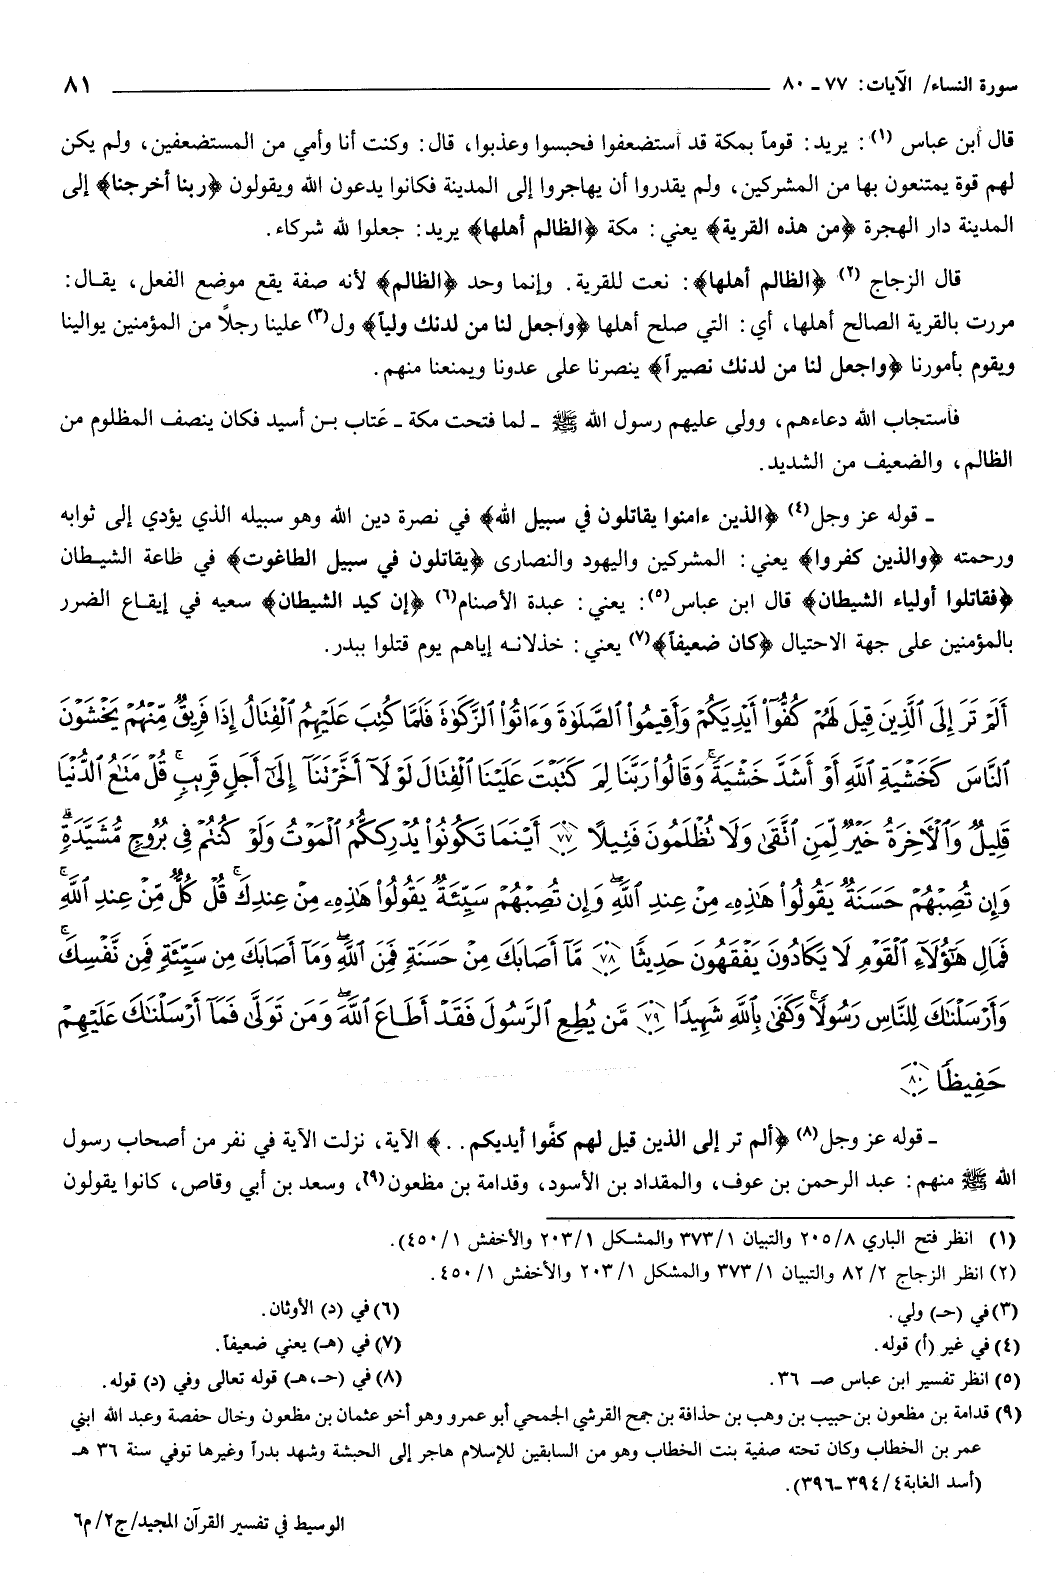 سورة النساء/ الآيات: ٧٧ ـ ٨٠ ٨١
قال ٱبن عباس (١) : يريد: قوماً بمكة قد ٱستضعفوا فحبسوا وعذبوا، قال: وكنت أنا وأمي من المستضعفين، ولم يكن
لهم قوة يمتنعون بها من المشركين، ولم يقدروا أن يهاجروا إلى المدينة فكانوا يدعون الله ويقولون ﴿ربنا أخرجنا﴾ إلى
المدينة دار الهجرة ﴿من هذه القرية﴾ يعني: مكة ﴿الظالم أهلها﴾ يريد: جعلوا لله شركاء.
قال الزجاج (٢) ﴿الظالم أهلها﴾: نعت للقرية. وإنما وحد ﴿الظالم﴾ لأنه صفة يقع موضع الفعل، يقـال:
مررت بالقرية الصالح أهلها، أي: التي صلح أهلها ﴿وٱجعل لنا من لدنك ولياً﴾ ول(٣) علينا رجلاً من المؤمنين يوالينا
ويقوم بأمورنا ﴿وٱجعل لنا من لدنك نصيراً﴾ ينصرنا على عدونا ويمنعنا منهم.
فٱستجاب الله دعاءهم، وولى عليهم رسول الله ﷺ ـ لما فتحت مكة ـ عَتاب بـن أسيد فكان ينصف المظلوم من
الظالم، والضعيف من الشديد.
ـ قوله عز وجل(٤) ﴿الذين ءامنوا يقاتلون في سبيل الله﴾ في نصرة دين الله وهو سبيله الذي يؤدي إلى ثوابه
ورحمته ﴿والذين كفروا﴾ يعني: المشركين واليهود والنصارى ﴿يقاتلون في سبيل الطاغوت﴾ في طاعة الشيـطان
﴿فقاتلوا أولياء الشيطان﴾ قال ابن عباس(٥): يعني: عبدة الأصنام(٦) ﴿إن كيد الشيطان﴾ سعيه في إيقـاع الضرر
بالمؤمنين على جهة الاحتيال ﴿كان ضعيفاً﴾(٧) يعني: خذلانـه إياهم يوم قتلوا ببدر.
أَلَمْ تَرَ إِلَى ٱلَّذِينَ قِيلَ لَهُمْ كُفُّوٓا۟ أَيْدِيَكُمْ وَأَقِيمُوا۟ ٱلصَّلَوٰةَ وَءَاتُوا۟ ٱلزَّكَوٰةَ فَلَمَّا كُتِبَ عَلَيْهِمُ ٱلْقِتَالُ إِذَا فَرِيقٌ مِّنْهُمْ يَخْشَوْنَ
ٱلنَّاسَ كَخَشْيَةِ ٱللَّهِ أَوْ أَشَدَّ خَشْيَةً ۚ وَقَالُوا۟ رَبَّنَا لِمَ كَتَبْتَ عَلَيْنَا ٱلْقِتَالَ لَوْلَآ أَخَّرْتَنَآ إِلَىٰٓ أَجَلٍ قَرِيبٍ ۗ قُلْ مَتَٰعُ ٱلدُّنْيَا
قَلِيلٌ وَٱلْءَاخِرَةُ خَيْرٌ لِّمَنِ ٱتَّقَىٰ وَلَا تُظْلَمُونَ فَتِيلًا ٧٧ أَيْنَمَا تَكُونُوا۟ يُدْرِككُّمُ ٱلْمَوْتُ وَلَوْ كُنتُمْ فِى بُرُوجٍ مُّشَيَّدَةٍ ۗ
وَإِن تُصِبْهُمْ حَسَنَةٌ يَقُولُوا۟ هَٰذِهِۦ مِنْ عِندِ ٱللَّهِ ۖ وَإِن تُصِبْهُمْ سَيِّئَةٌ يَقُولُوا۟ هَٰذِهِۦ مِنْ عِندِكَ ۚ قُلْ كُلٌّ مِّنْ عِندِ ٱللَّهِ ۖ
فَمَالِ هَٰٓؤُلَآءِ ٱلْقَوْمِ لَا يَكَادُونَ يَفْقَهُونَ حَدِيثًا ٧٨ مَّآ أَصَابَكَ مِنْ حَسَنَةٍ فَمِنَ ٱللَّهِ ۖ وَمَآ أَصَابَكَ مِن سَيِّئَةٍ فَمِن نَّفْسِكَ ۚ
وَأَرْسَلْنَٰكَ لِلنَّاسِ رَسُولًا ۚ وَكَفَىٰ بِٱللَّهِ شَهِيدًا ٧٩ مَّن يُطِعِ ٱلرَّسُولَ فَقَدْ أَطَاعَ ٱللَّهَ ۖ وَمَن تَوَلَّىٰ فَمَآ أَرْسَلْنَٰكَ عَلَيْهِمْ
حَفِيظًا ٨٠
ـ قوله عز وجل(٨) ﴿ألم تر إلى الذين قيل لهم كفّوا أيديكم. .﴾ الآية، نزلت الآية في نفر من أصحاب رسول
الله ﷺ منهم: عبد الرحمن بن عوف، والمقداد بن الأسود، وقدامة بن مظعون(٩)، وسعد بن أبي وقاص، كانوا يقولون
(١) انظر فتح الباري ٢٠٥/٨ والتبيان ٣٧٣/١ والمشـكل ٢٠٣/١ والأخفش ٤٥٠/١).
(٢) انظر الزجاج ٨٢/٢ والتبيان ٣٧٣/١ والمشكل ٢٠٣/١ والأخفش ٤٥٠/١.
(٣) في (حـ) ولي. (٦) في (د) الأوثان.
(٤) في غير (أ) قوله. (٧) في (هـ) يعني ضعيفاً.
(٥) انظر تفسير ابن عباس صـ ٣٦. (٨) في (حـ، هـ) قوله تعالى وفي (د) قوله.
(٩) قدامة بن مظعون بن حبيب بن وهب بن حذافة بن جمح القرشي الجمحي أبو عمرو وهو أخو عثمان بن مظعون وخال حفصة وعبد الله ابني
عمر بن الخطاب وكان تحته صفية بنت الخطاب وهو من السابقين للإسلام هاجر إلى الحبشة وشهد بدراً وغيرها توفي سنة ٣٦ هـ
(أسد الغابة ٣٩٤/٤ ـ ٣٩٦).
الوسيط في تفسير القرآن المجيد/ج٢/م٦